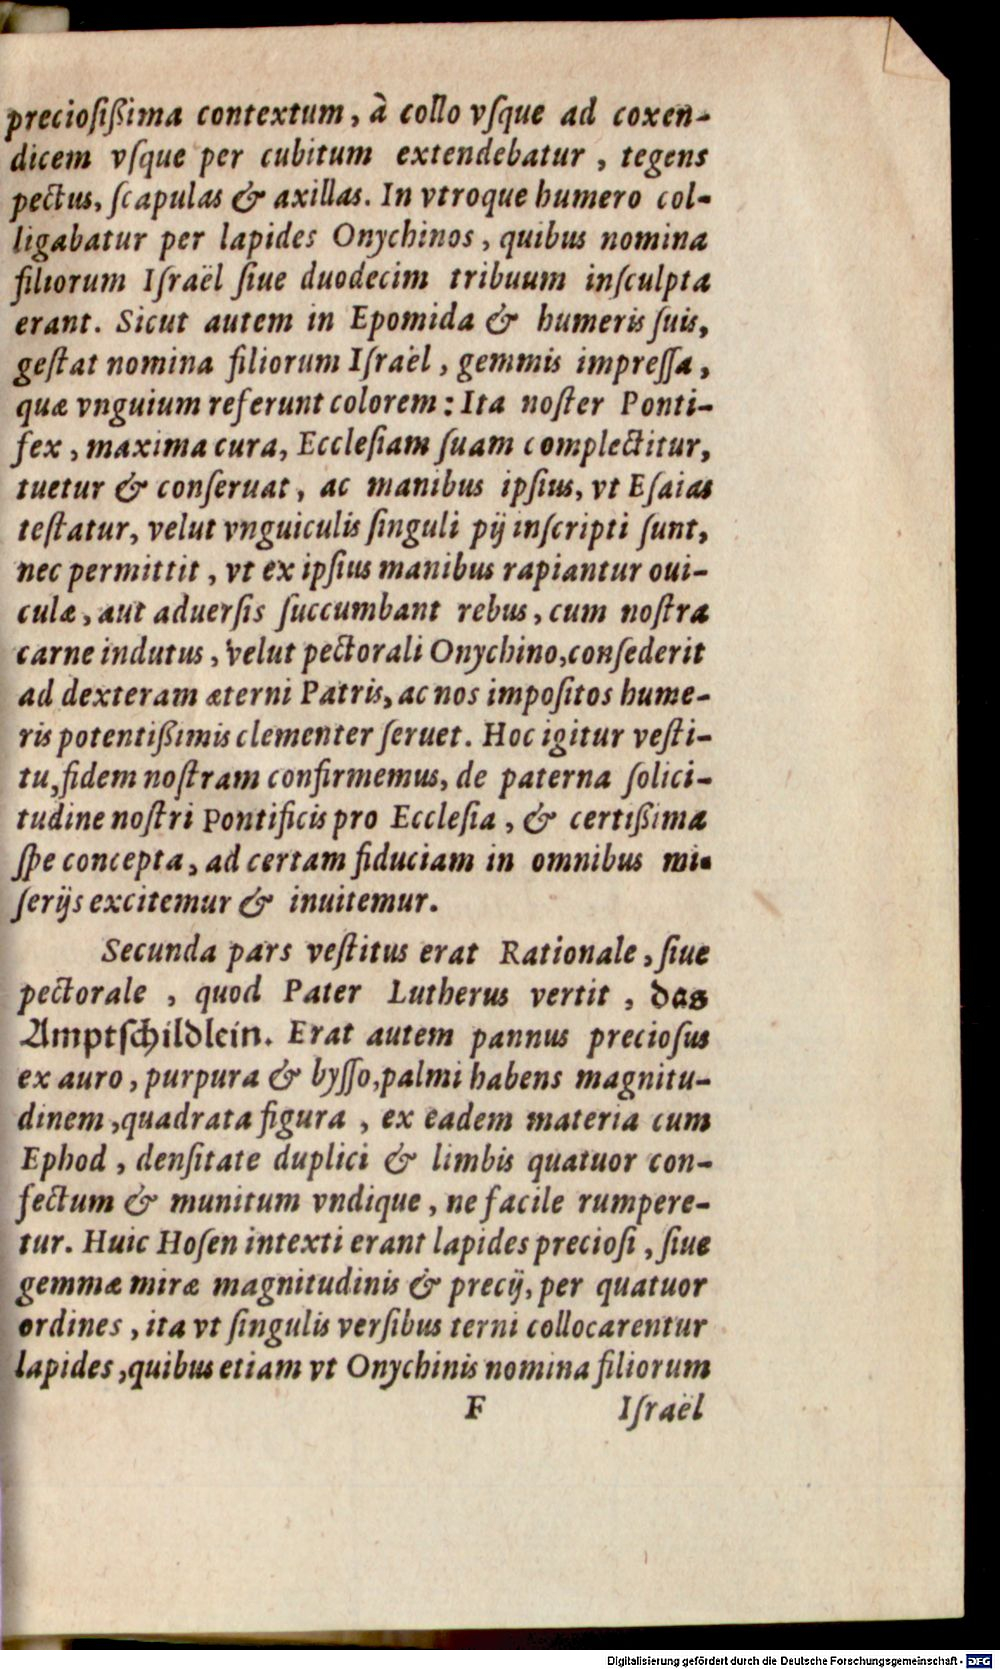 preciosißima contextum, à collo vſque ad coxen-
dicem vſque per cubitum extendebatur, tegens
pectus, ſcapulas & axillas. In vtroque humero col-
ligabatur per lapides Onychinos, quibus nomina
filiorum Iſraël ſiue duodecim tribuum inſculpta
erant. Sicut autem in Epomida & humeris ſuis,
geſtat nomina filiorum Iſraël, gemmis impreſſa,
quæ vnguium referunt colorem: Ita noſter Ponti-
fex, maxima cura, Eccleſiam ſuam complectitur,
tuetur & conſeruat, ac manibus ipſius, vt Eſaias
teſtatur, velut vnguiculis ſinguli pij inſcripti ſunt,
nec permittit, vt ex ipſius manibus rapiantur oui-
culæ, aut aduerſis ſuccumbant rebus, cum noſtra
carne indutus, velut pectorali Onychino, conſederit
ad dexteram æterni Patris, ac nos impoſitos hume-
ris potentißimis clementer ſeruet. Hoc igitur veſti-
tu, fidem noſtram confirmemus, de paterna ſolici-
tudine noſtri Pontificis pro Eccleſia, & certißima
ſpe concepta, ad certam fiduciam in omnibus mi-
ſerijs excitemur & inuitemur.
Secunda pars veſtitus erat Rationale, ſiue
pectorale, quod Pater Lutherus vertit, das
Amptſchildlein. Erat autem pannus precioſus
ex auro, purpura & byſſo, palmi habens magnitu-
dinem, quadrata figura, ex eadem materia cum
Ephod, denſitate duplici & limbis quatuor con-
fectum & munitum vndique, ne facile rumpere-
tur. Huic Hoſen intexti erant lapides precioſi, ſiue
gemmæ miræ magnitudinis & precij, per quatuor
ordines, ita vt ſingulis verſibus terni collocarentur
lapides, quibus etiam vt Onychinis nomina filiorum
F Iſraël
Digitalisierung gefördert durch die Deutsche Forschungsgemeinschaft - DFG